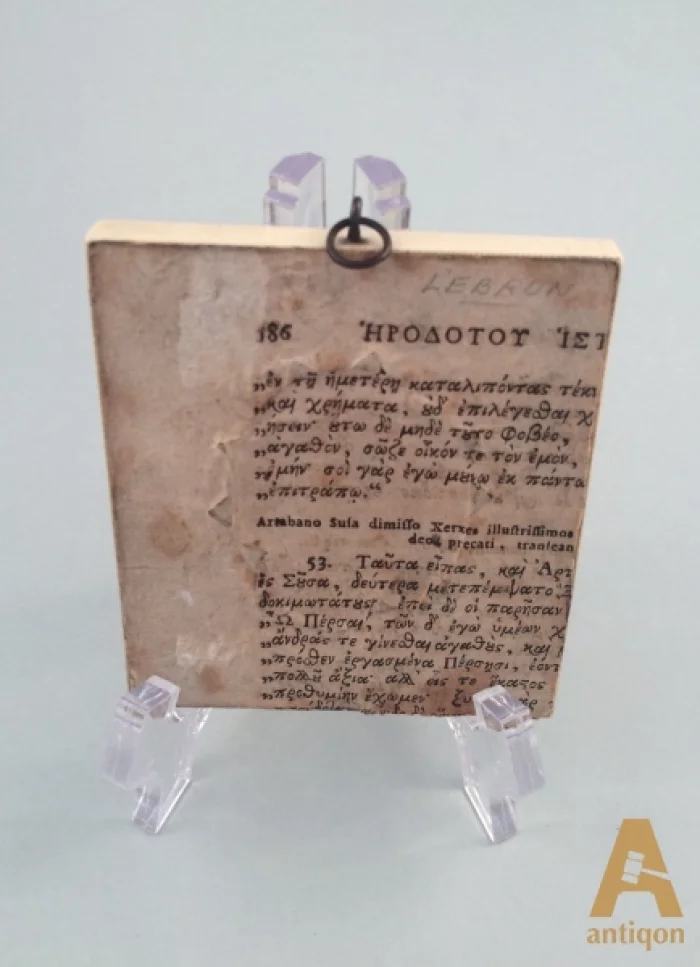 LEBRUN
186 ἩΡΟΔΟΤΟΥ ἹΣΤ
„ἐν τῇ ἡμετέρῃ καταλιπόντας τέκν
„καὶ χρήματα, οὐδ' ἐπιλέγεσθαι χ
„ήσειν· οὕτω δὴ μηδὲ τοῦτο φοβέο,
„ἀγαθὸν, σῶζε οἶκόν τε τὸν ἐμὸν,
„ἐμήν· σοὶ γὰρ ἐγὼ μούνῳ ἐκ πάντω
„ἐπιτράπω.“
Artabano Susa dimisso Xerxes illustrissimos
deos precati, transean
53. Ταῦτα εἴπας, καὶ Ἀρτ
ἐς Σοῦσα, δεύτερα μετεπέμψατο Ξ
δοκιμωτάτους· ἐπεὶ δέ οἱ παρῆσαν
„Ὦ Πέρσαι, τῶν δ' ἐγὼ ὑμέων χ
„ἄνδρας τε γίνεσθαι ἀγαθοὺς, καὶ
„πρόσθεν ἐργασμένα Πέρσῃσι, ἐόντ
„πολλοῦ ἄξια· ἀλλ' εἷς τε ἕκαστος
„προθυμίην ἔχωμεν·
antiqon